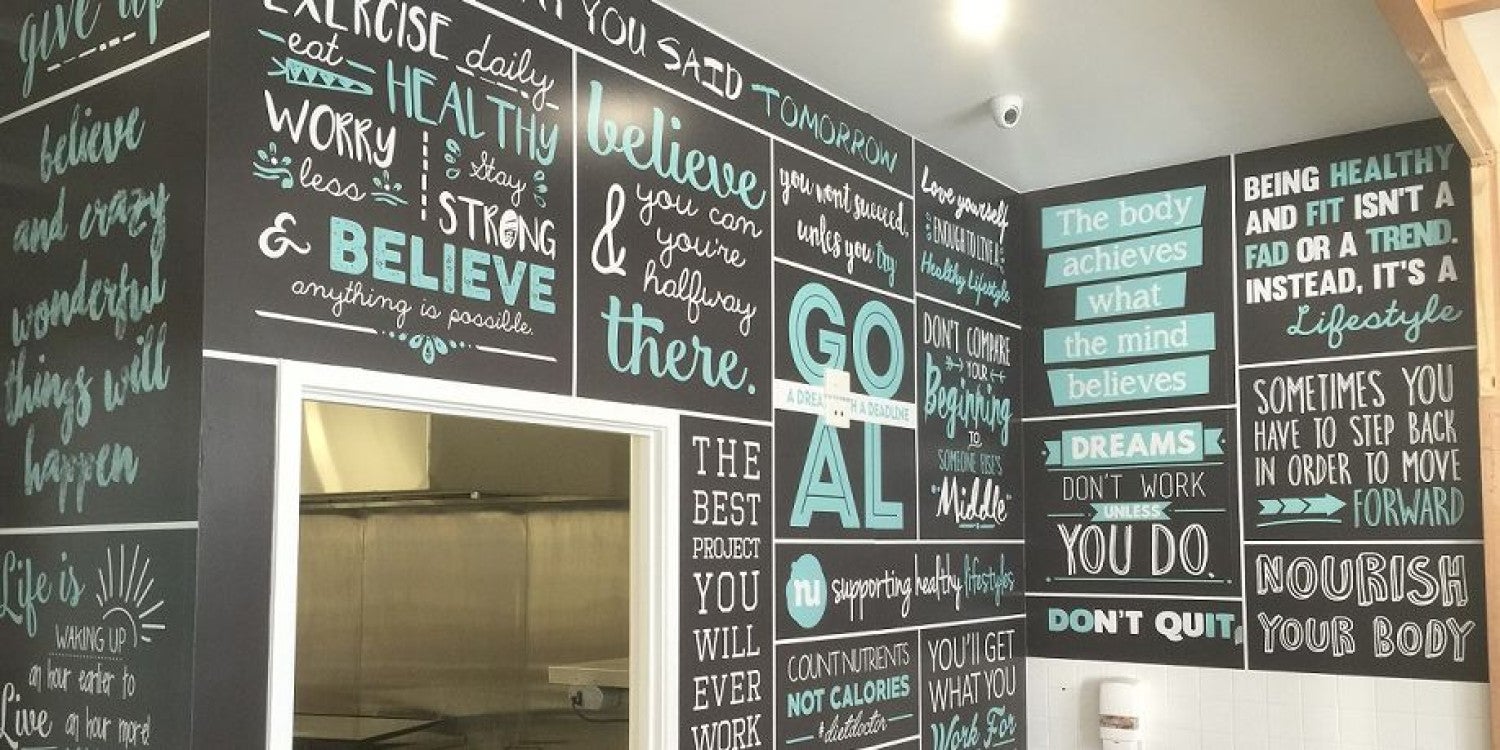 give up
believe
and crazy
wonderful
things will
happen
Life is
WAKING UP
an hour earlier to
Live an hour more!
EXERCISE daily
eat HEALTHY
WORRY
less
Stay
STRONG
& BELIEVE
anything is possible.
YOU SAID TOMORROW
believe
& you can
you're
halfway
there.
THE
BEST
PROJECT
YOU
WILL
EVER
WORK
you won't succeed,
unless you try
GO
A DREAM WITH A DEADLINE
AL
Love yourself
ENOUGH TO LIVE A
Healthy Lifestyle
DON'T COMPARE
YOUR
Beginning
TO
SOMEONE ELSE'S
"Middle"
nu supporting healthy lifestyles
COUNT NUTRIENTS
NOT CALORIES
#dietdoctor
YOU'LL GET
WHAT YOU
Work For
The body
achieves
what
the mind
believes
DREAMS
DON'T WORK
UNLESS
YOU DO.
DON'T QUIT
BEING HEALTHY
AND FIT ISN'T A
FAD OR A TREND.
INSTEAD, IT'S A
Lifestyle
SOMETIMES YOU
HAVE TO STEP BACK
IN ORDER TO MOVE
FORWARD
NOURISH
YOUR BODY